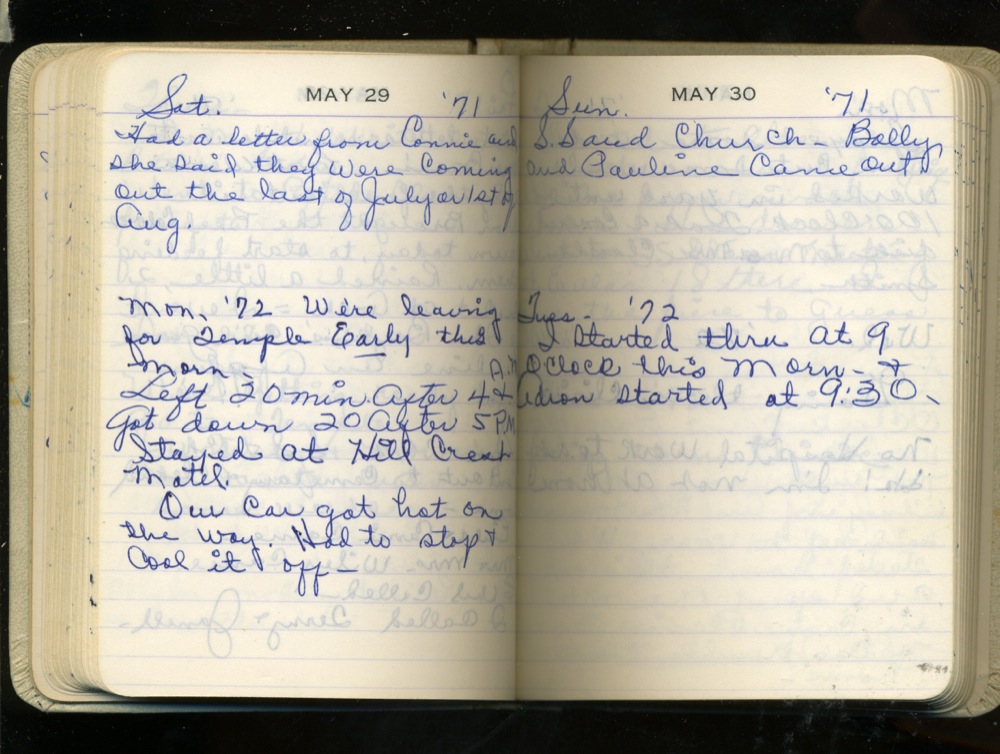 Sat. MAY 29 '71
Had a letter from Connie and
she said they were Coming
out the last of July or 1st of
Aug.
Mon. '72 We're leaving
for Temple Early this
Morn - A.M
Left 20 min. After 4 &
Got down 20 After 5 PM
Stayed at Hill Crest
Motel.
Our Car got hot on
the way. Had to stop &
Cool it off -
Sun. MAY 30 '71
S.S and Church - Bobby
and Pauline Came out
Tues - '72
I started thru at 9
O'Clock this Morn - &
started at 9:30 -